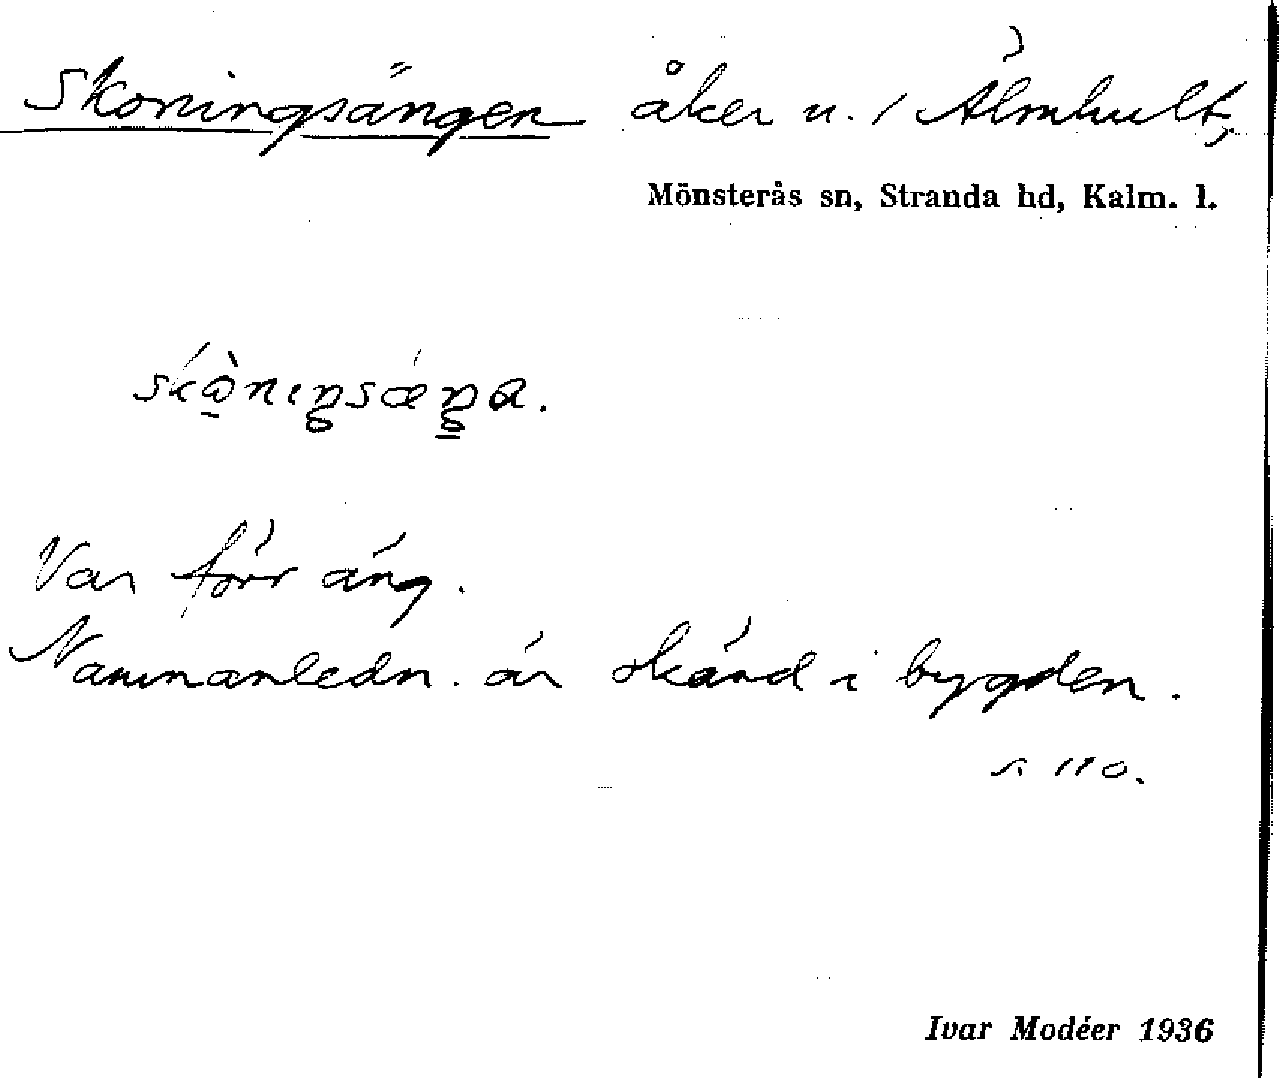 Skoningsängen åker u. / Älmhult,
Mönsterås sn, Stranda hd, Kalm. l.
Var förr äng.
Namnanledn. är okänd i bygden.
s. 110.
Ivar Modéer 1936